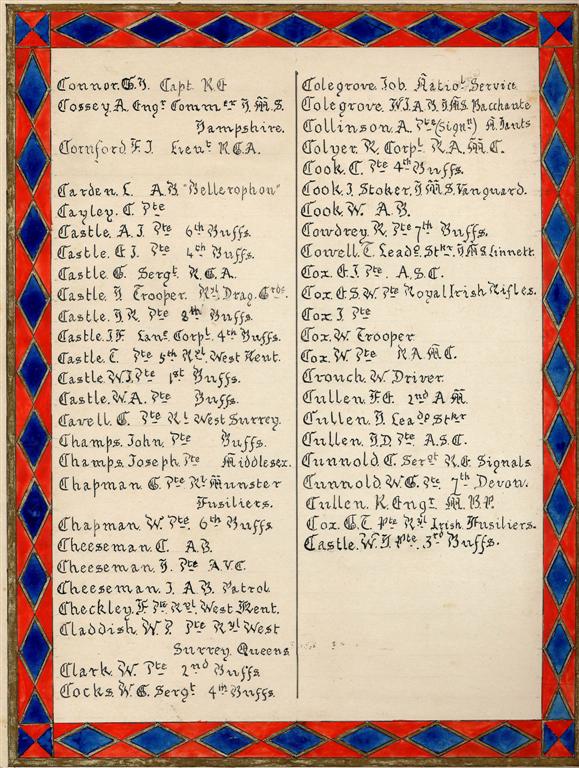 Connor. G. H. Capt. R E
Cossey. A. Engr Commer H. M. S.
Hampshire.
Cornford F. J. Lieut R.G.A.
Carden. L. A B "Bellerophon"
Cayley. C. Pte
Castle. A. J Pte 6th Buffs.
Castle. E J. Pte 4th Buffs.
Castle. G. Sergt. R.G.A.
Castle. H Trooper. Ryl Drag. Grds.
Castle. H. R. Pte 8th Buffs
Castle. J. F. Lanc Corpl. 4th Buffs.
Castle. T. Pte 5th Ryl. West Kent.
Castle. W. J. Pte 1st Buffs.
Castle. W. A. Pte Buffs.
Cavell. G. Pte Rl West Surrey.
Champs. John. Pte Buffs.
Champs. Joseph. Pte Middlesex.
Chapman. G. Pte Rl Munster
Fusiliers.
Chapman. W. Pte 6th Buffs
Cheeseman. C. A. B.
Cheeseman. H. Pte A.V.C.
Cheeseman. J. A. B. Patrol
Checkley. F Pte Ryl. West Kent.
Claddish. W. P. Pte Ryl West
Surrey. Queens
Clark. W. Pte 2nd Buffs
Cocks. W. G. Sergt 4th Buffs.
Colegrove. Job. Natiol Service.
Colegrove. W. J. A. B. H.M.S. Bacchante
Collinson. A. Pte (Signr) N. Hants
Colyer. R. Corpl R. A. M. C.
Cook. C. Pte 4th Buffs.
Cook. J. Stoker. H M S. Vanguard.
Cook. W. A. B.
Cowdrey. R. Pte 7th Buffs.
Cowell. T. Leadg Stkr. H M S Linnett.
Cox. E. J Pte. A. S. C.
Cox. E. S. W. Pte Royal Irish Rifles.
Cox. J Pte
Cox. W. Trooper
Cox. W. Pte R A M C.
Crouch. W. Driver.
Cullen. F. G. 2nd A M.
Cullen. H. Leadg Stkr
Cullen. H. D. Pte A. S. C.
Cunnold. C. Sergt R. E. Signals
Cunnold. W. G. Pte 7th Devon.
Cullen. R. Engr M. B. P.
Cox. G. T. Pte Ryl Irish Fusiliers.
Castle. W. H. Pte. 3rd Buffs.